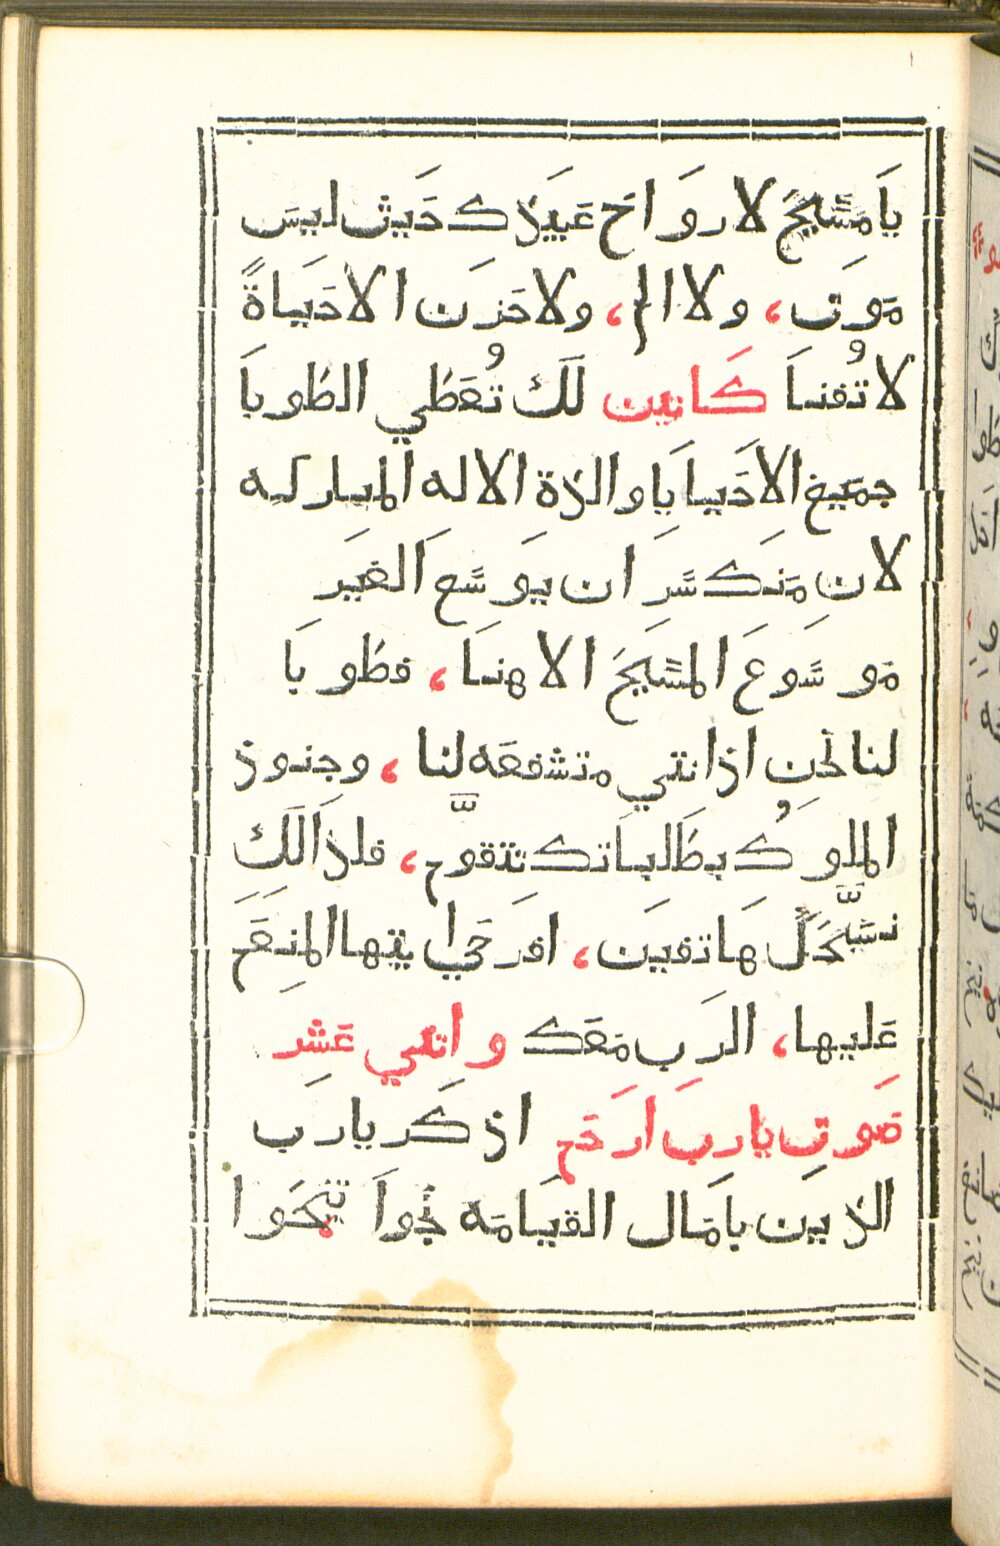 يَا مَسِّيحَ لارواح عَبيدك حَيث ليسَ
مَوت، ولا الم، ولاحَزن الا حَياةً
لا تُفنىاَ كَانين لَك تُعَطي الطوباَ
جمَيع الاحَيا يَا والدة الاله المباركه
لان مَنكسَر ان يوسَّع القبَر
مَو سُّوعَ المسَيح الاهنىاَ، فطوباَ
لنا نحن اذ انتي متشفعَه لنا، وجنوذ
الملوكُ بطَلباتك تتقوَّم، فلذالَك
نسَّبحَلّ هَاتفين، افرَحَي ايتها المنعَم
عَليها، الرَب مَعَك واتني عَشر
ضوت يارب ارَحَم اذ كَر يارَب
الذين باَمَال القيَامَه نحواَ تنيحَوا